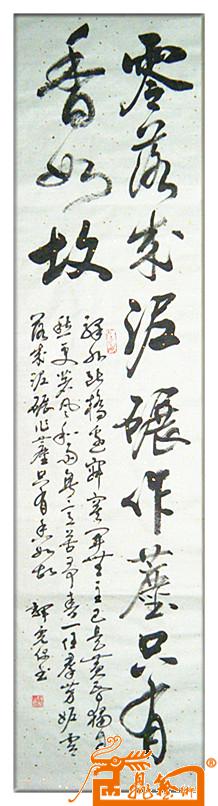 零落成泥碾作塵只有
香如故
驛外斷橋邊寂寞開無主已是黃昏獨自
愁更著風和雨無意苦爭春一任群芳妒零
落成泥碾作塵只有香如故
书